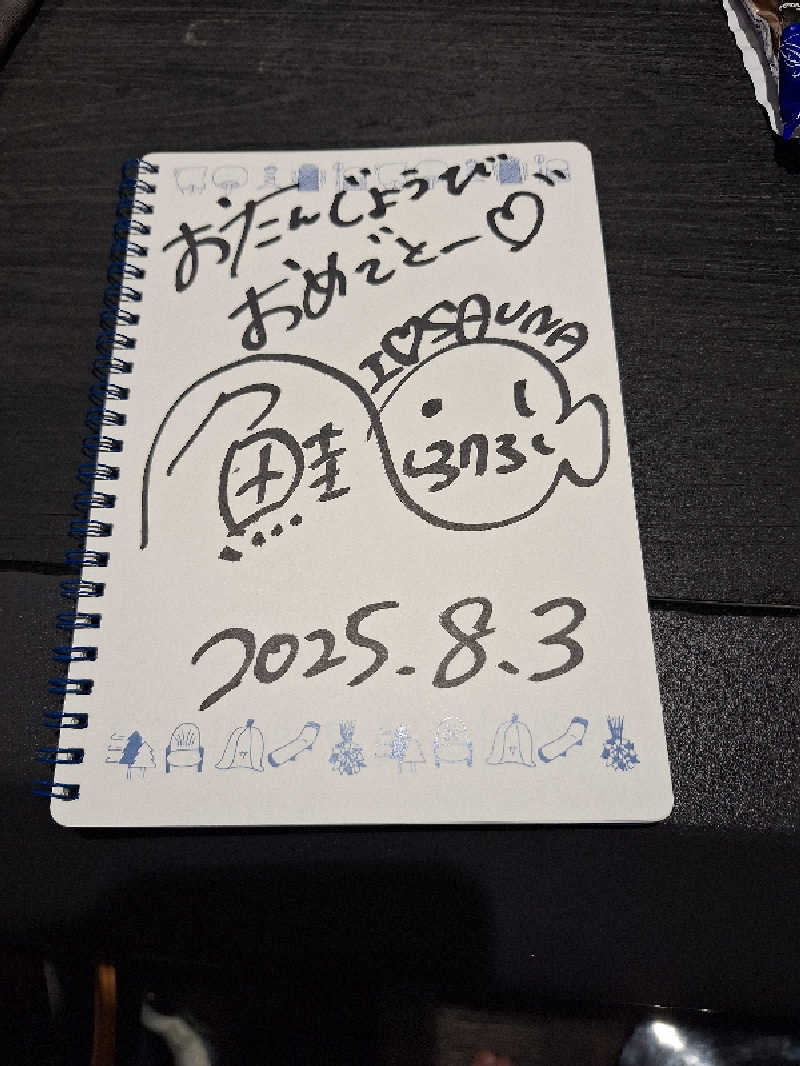 おたんじょうび
おめでとー♡
I♡SAUNA
鮭
2025.8.3